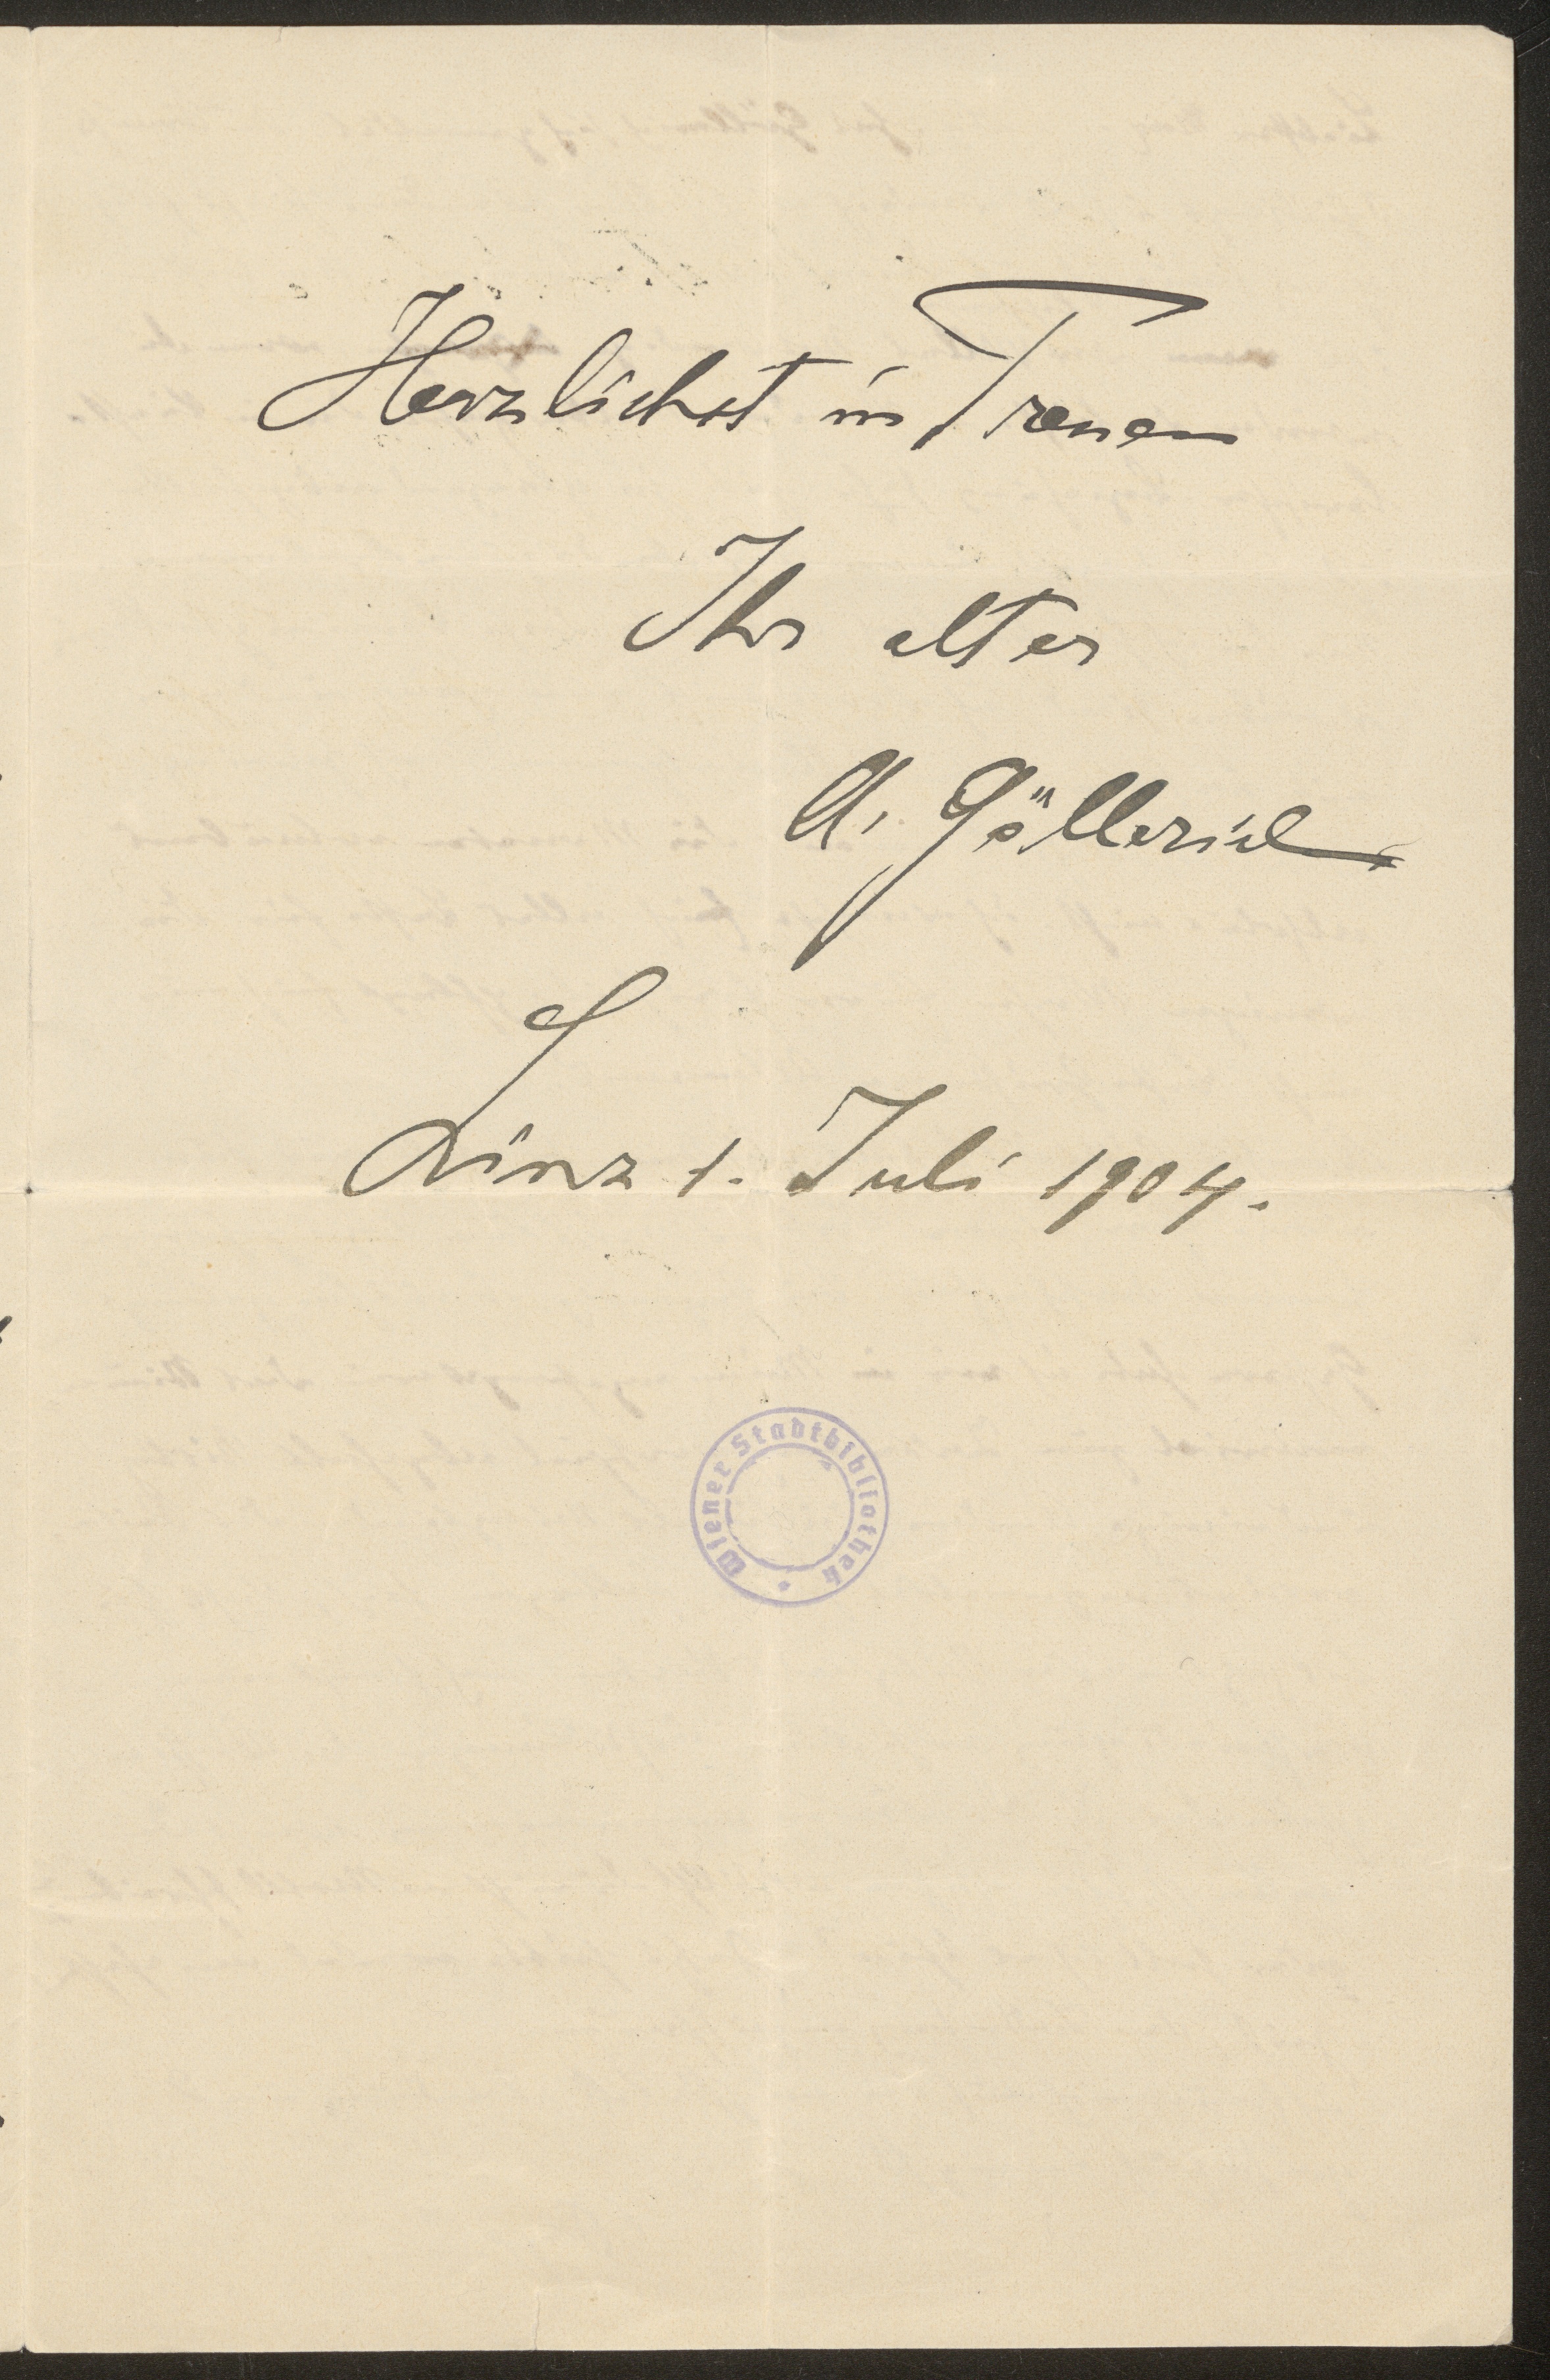 Herzlichst in Treuen
Ihr alter
A. Göllerich
Linz 1. Juli 1904.
Wiener Stadtbibliothek